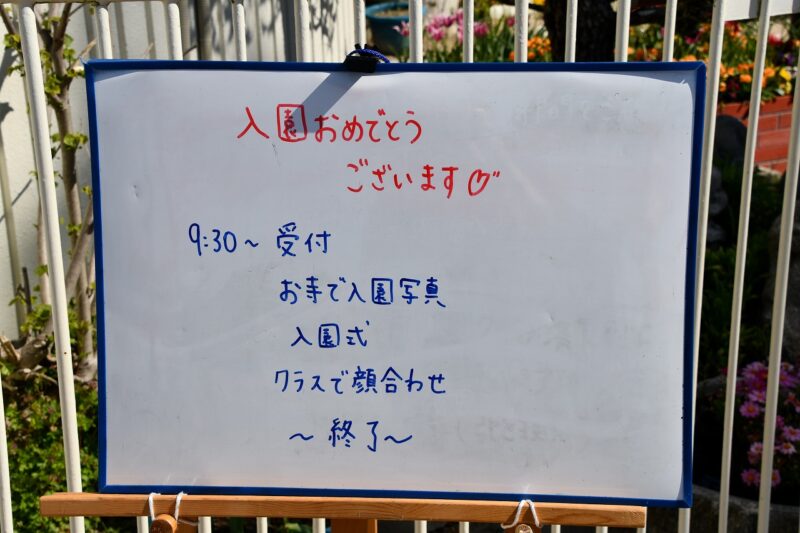 入園おめでとう
ございます♡
9:30～ 受付
お寺で入園写真
入園式
クラスで顔合わせ
～終了～